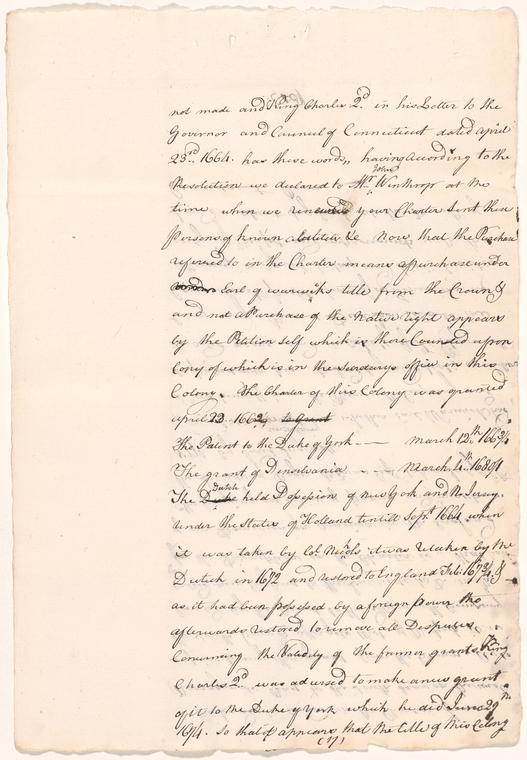 not made and King Charles 2.d in his Letter to the
Governor and Councel of Connecticut dated april
23.rd 1664. has these words, having according to the
Resolution we declared to Mr. John Winthrop at the
time when we renewed your Charter sent these
Persons of known abilities &c Now that the Purchase
referred to in the Charter means a purchase under
Earl of warwicks title from the Crown &
and not a Purchase of the Native right appears
by the Petition self which is there Counted upon
Copy of which is in the Secretarys office in this
Colony. The Charter of this Colony was granted
april 23 1662
The Patent to the Duke of York — March 12.th 1663/4
The grant of Pensilvania — March 4.th 1680/1
The Dutch held Possession of New York and N. Jersey
under the States of Holland untill Sept.r 1664 when
it was taken by Col. Nicols it was retaken by the
Dutch in 1672 and restored to England Feb. 1673/4 &
as it had been possesed by a foreign power tho
afterwards restored to remove all Desputes
Concerning the Validity of the former grants King
Charles 2.d was advised to make a new grant
of it to the Duke of York which he did June 29.th
1674. so that it appears that the title of this Colony
(17)